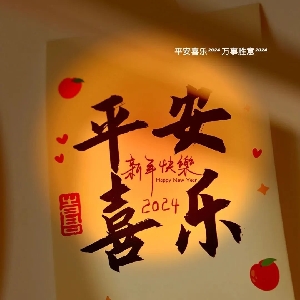 平安喜乐2024 万事胜意2024
平安
新年快樂
Happy New Year
2024
喜乐